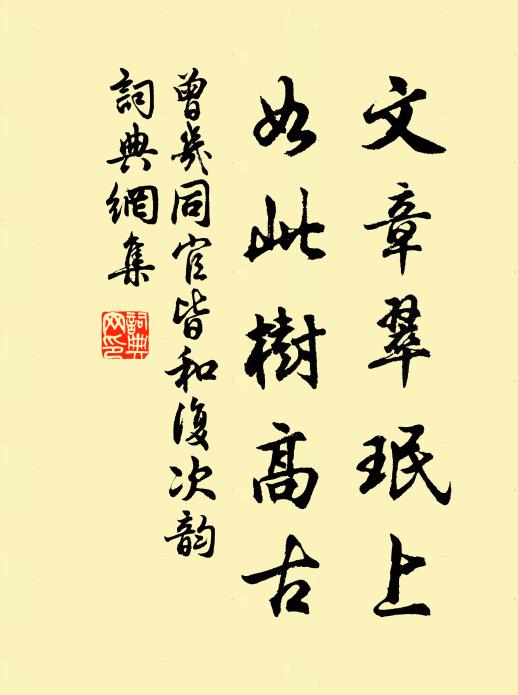 文章翠珉上
如此樹高古
曾幾同官皆和復次韵
詞典網集
詞典網印